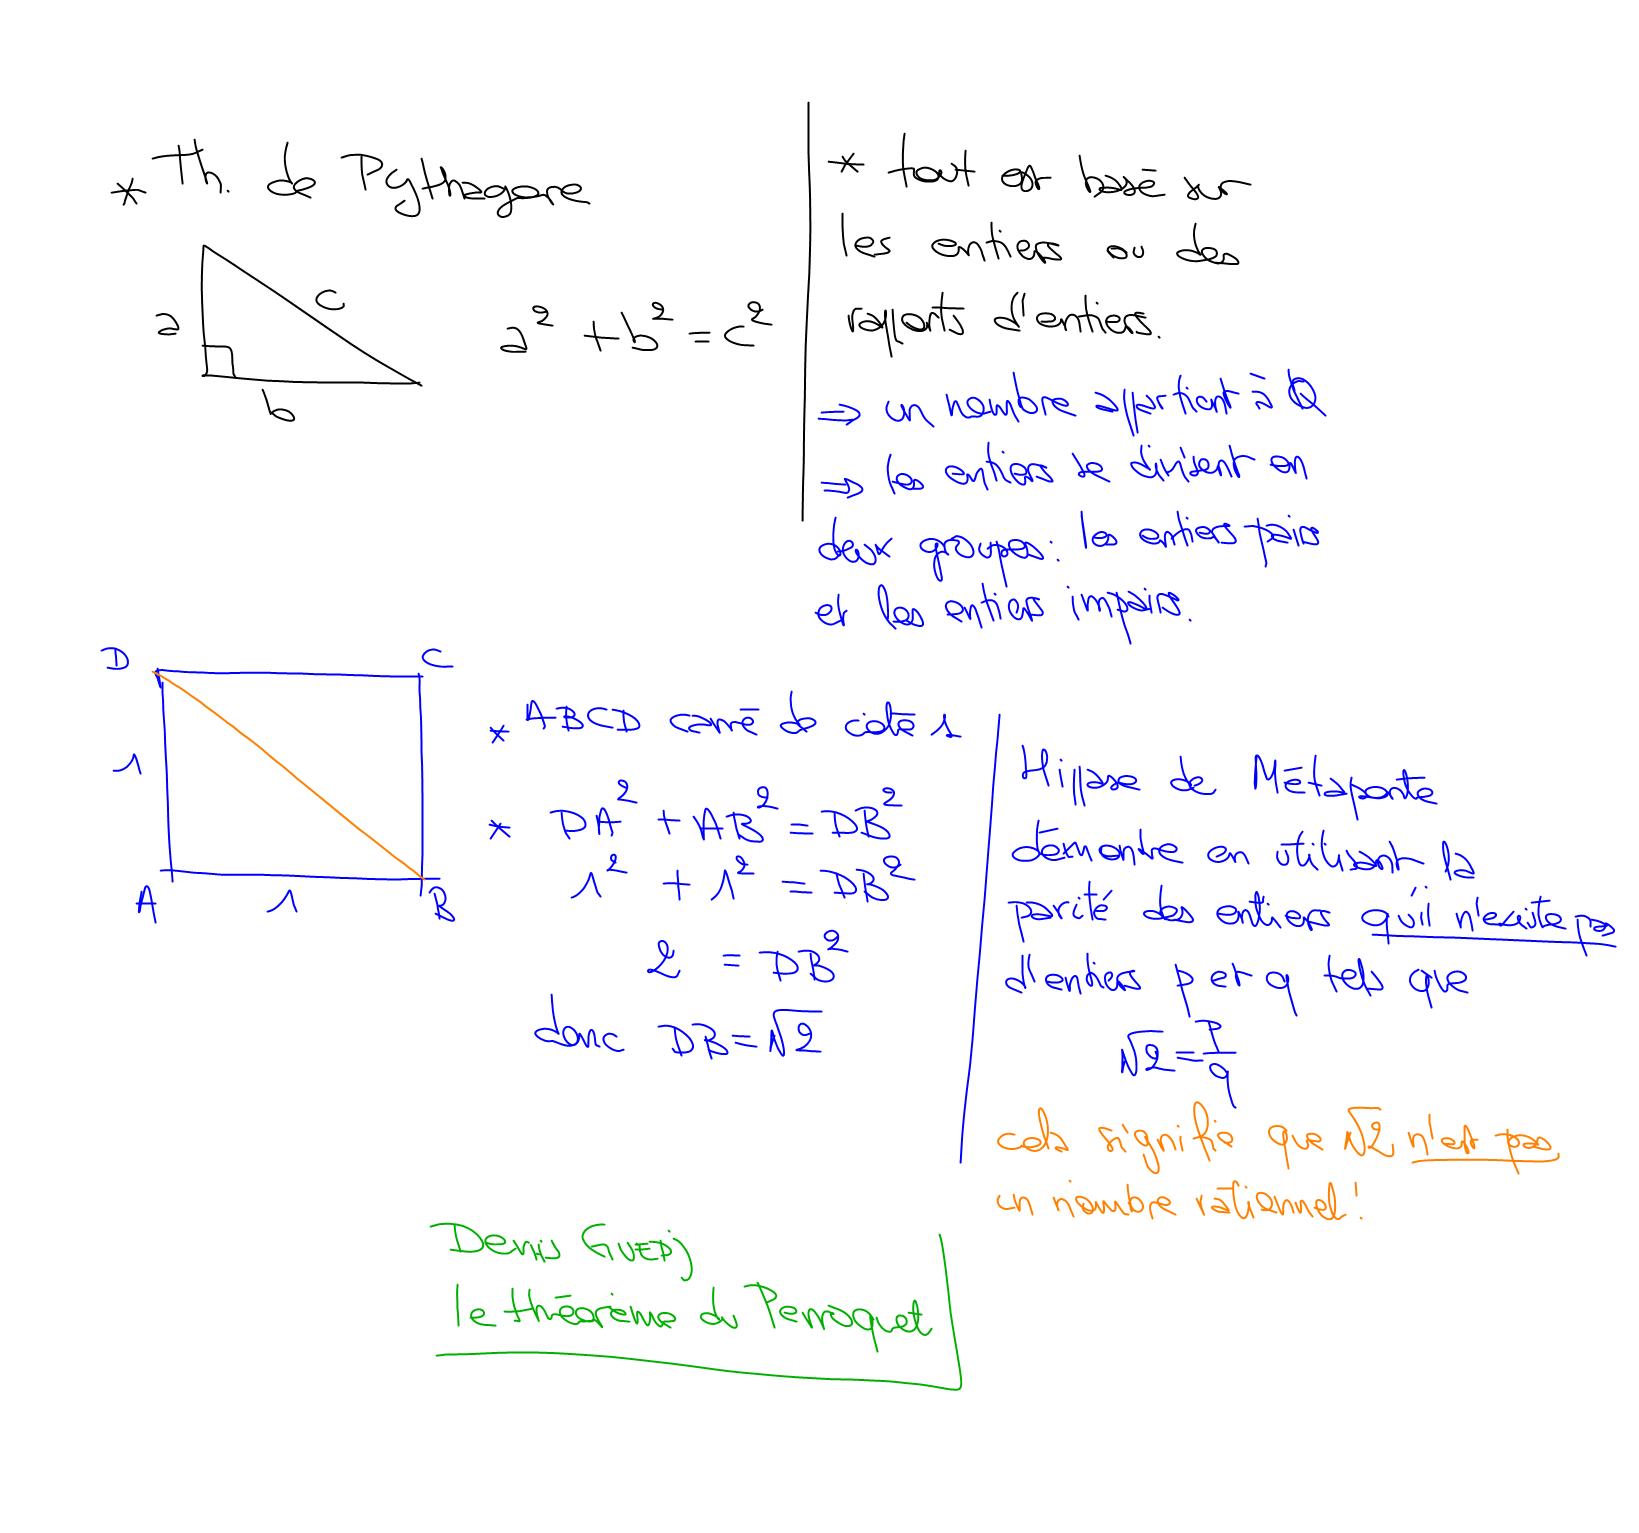 * Th. de Pythagore
a
c
b
a² + b² = c²
* tout est basé sur
les entiers ou des
rapports d'entiers.
⇒ un nombre appartient à Q
⇒ les entiers se divisent en
deux groupes : les entiers pairs
et les entiers impairs.
D
C
1
A
1
B
* ABCD carré de côté 1
* DA² + AB² = DB²
1² + 1² = DB²
2 = DB²
donc DB = √2
Hippase de Métaponte
démontre en utilisant la
parité des entiers qu'il n'existe pas
d'entiers p et q tels que
√2 = p/q
cela signifie que √2 n'est pas
un nombre rationnel !
Denis GUEDj
le théorème du Perroquet